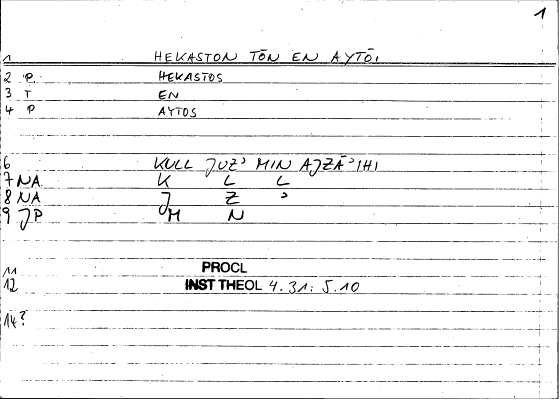 1
1 HEKASTON TŌN EN AYTŌI
2 P HEKASTOS
3 T EN
4 P AYTOS
6 KULL JUZʾ MIN AJZĀʾIHI
7 NA K L L
8 NA J Z ʾ
9 JP M N
11 PROCL
12 INST THEOL 4.31: 5.10
14?